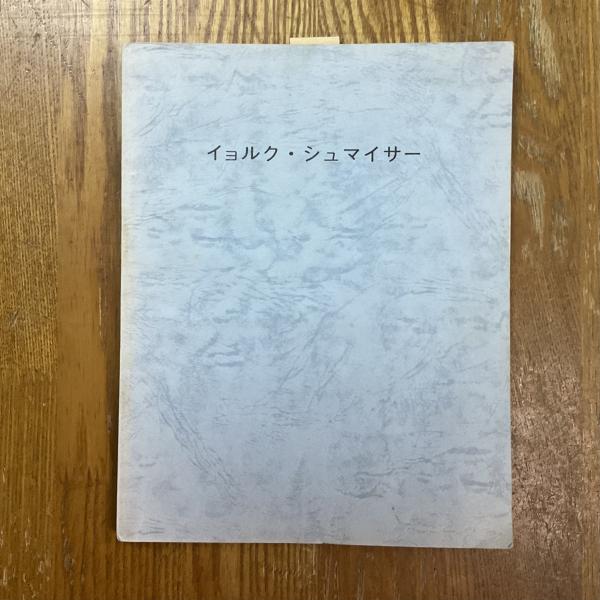 イョルク・シュマイサー